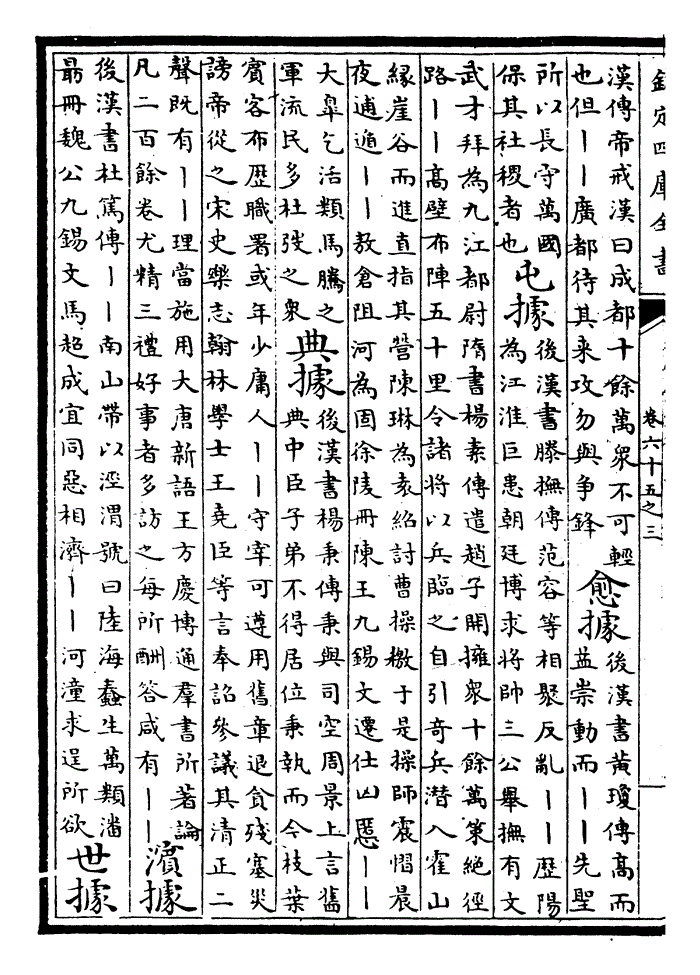 欽定四庫全書
卷六十五之三
漢傳帝戒漢曰成都十餘萬衆不可輕
也但丨丨廣都待其来攻勿與争鋒
愈據
後漢書黄瓊傳髙而
益崇動而丨丨先聖
所以長守萬國
保其社稷者也
屯據
後漢書滕撫傳范容等相聚反亂丨丨歴陽
為江淮巨患朝廷博求將帥三公舉撫有文
武才拜為九江都尉隋書楊素傳遣趙子開擁衆十餘萬策絶徑
路丨丨髙壁布陣五十里令諸將以兵臨之自引奇兵潜入霍山
縁崖谷而進直指其營陳琳為袁紹討曹操檄于是操師震慴晨
夜逋遁丨丨敖倉阻河為固徐陵冊陳王九錫文遷仕凶慝丨丨
大臯乞活類馬騰之
軍流民多杜弢之衆
典據
後漢書楊秉傳秉與司空周景上言舊
典中臣子弟不得居位秉執而今枝葉
賔客布歴職署或年少庸人丨丨守宰可遵用舊章退貪殘塞災
謗帝從之宋史樂志翰林學士王堯臣等言奉詔參議其清正二
聲既有丨丨理當施用大唐新語王方慶博通羣書所著論
凡二百餘卷尤精三禮好事者多訪之每所酬答咸有丨丨
濱據
後漢書杜篤傳丨丨南山帶以涇渭號曰陸海蠢生萬類潘
勗冊魏公九錫文馬超成宜同惡相濟丨丨河潼求逞所欲
世據